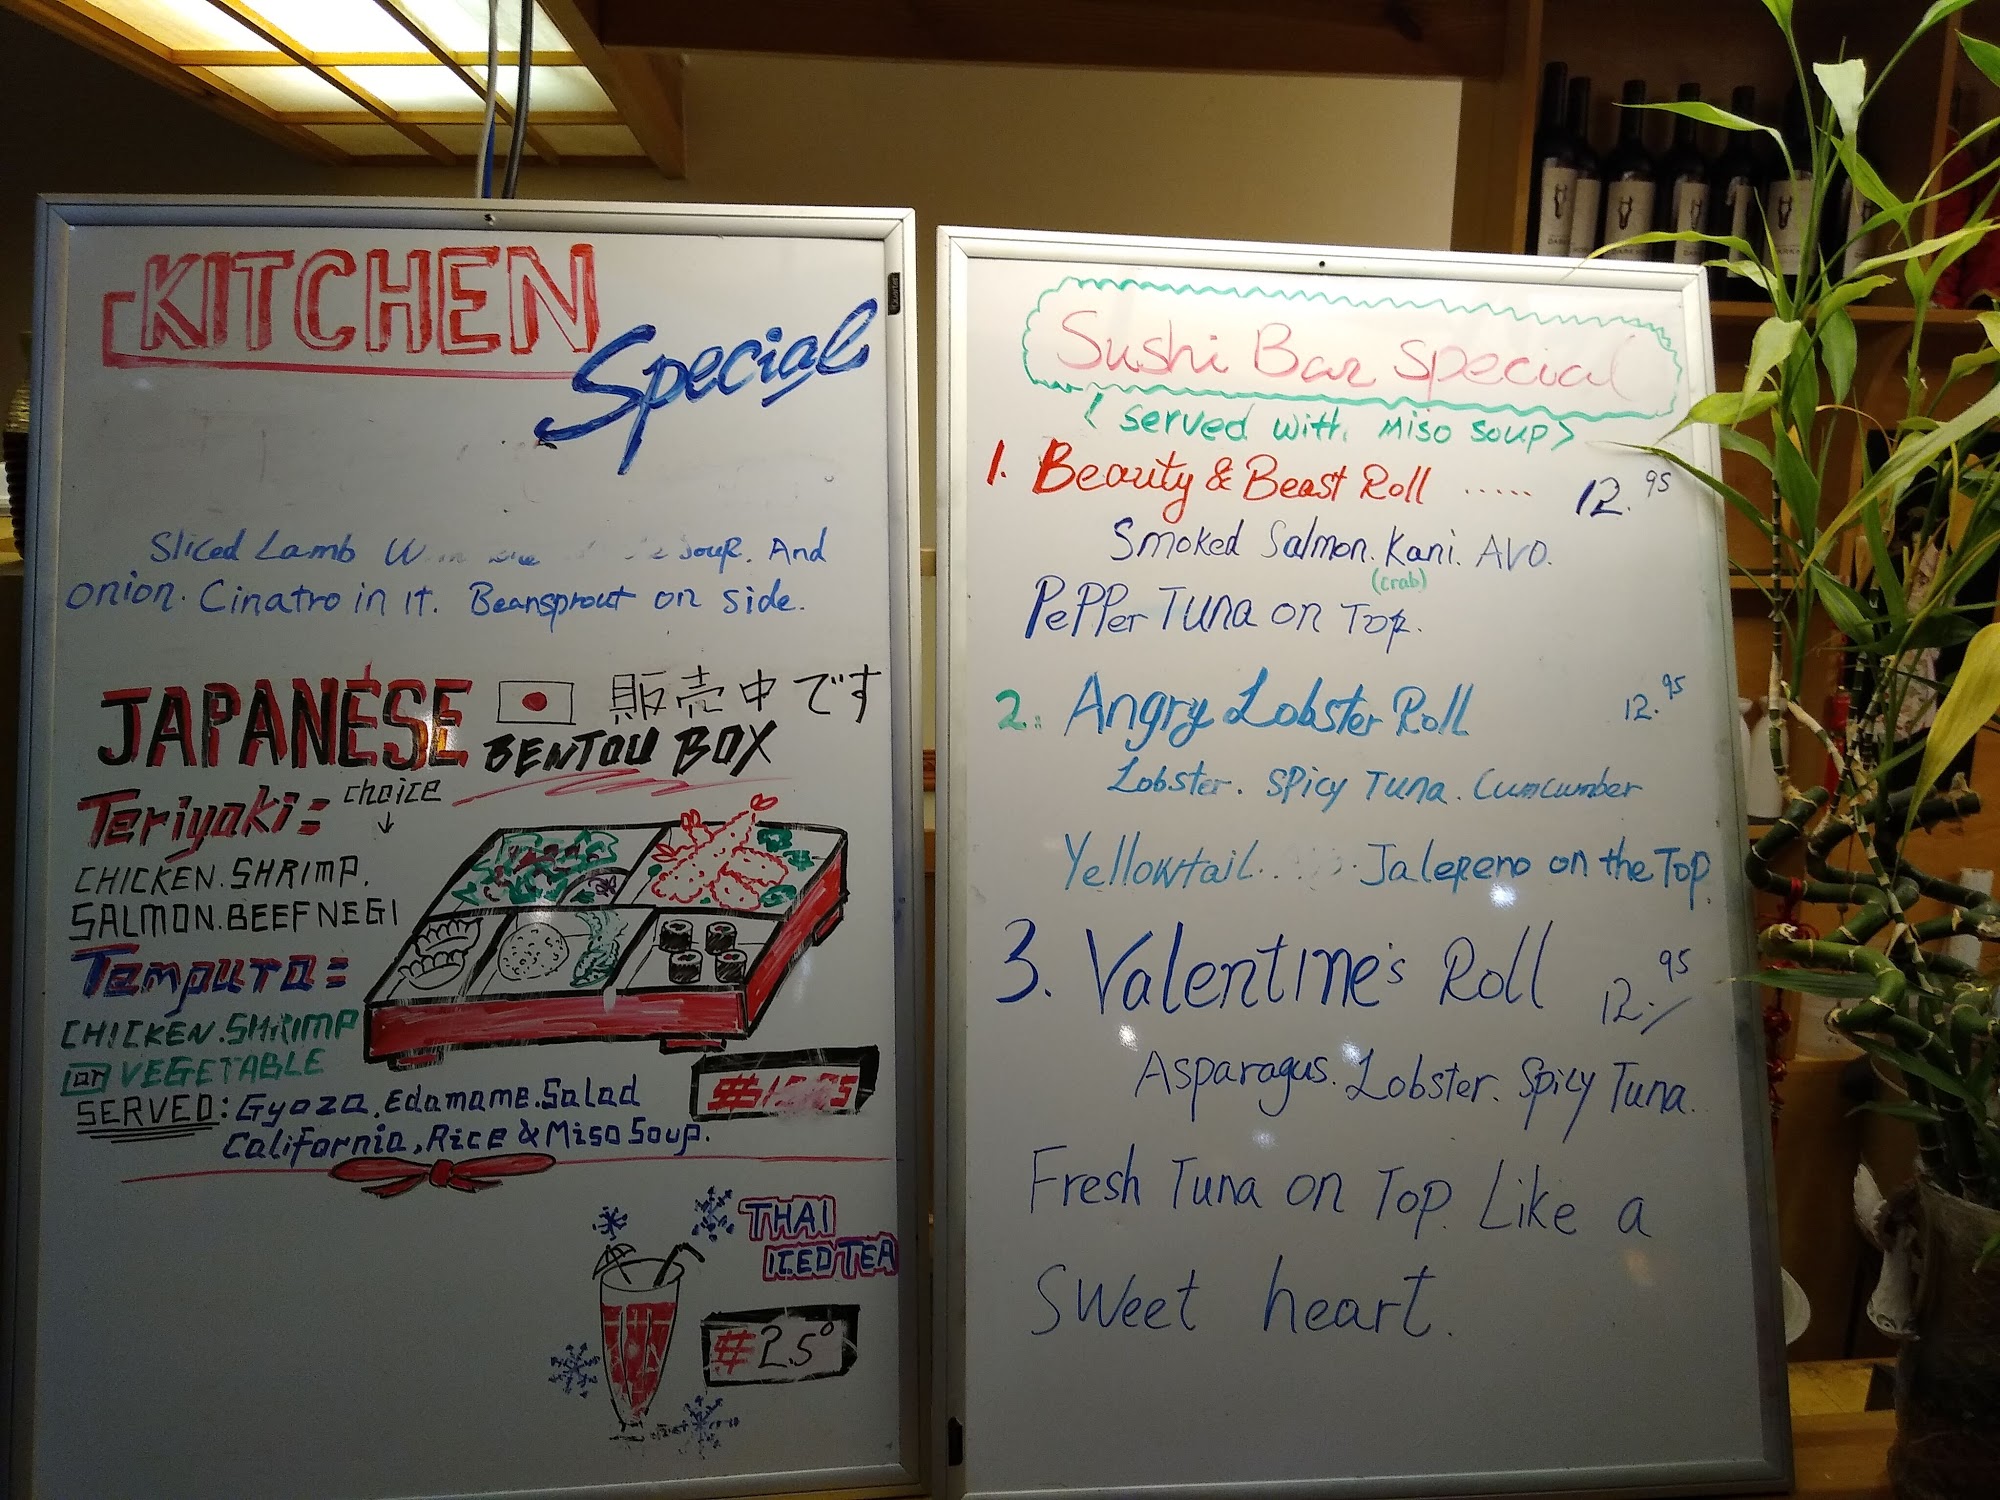 KITCHEN
Special
Sliced Lamb SOUP. And
onion. Cinatro in it. Beansprout on side.
JAPANESE 販売中です
BENTOU BOX
Teriyaki= choice
CHICKEN.SHRIMP.
SALMON.BEEF NEGI
Tempura=
CHICKEN.SHRIMP
or VEGETABLE
SERVED: Gyoza.Edamame.Salad
California,Rice & Miso Soup.
THAI
ICED TEA
2.5°
Sushi Bar special
< served with Miso soup>
1. Beauty & Beast Roll ..... 12.95
Smoked Salmon. Kani. AVO.
(crab)
PePPer TUNA on Top.
2. Angry Lobster Roll 12.95
Lobster. SPicy TUNA. Cumcumber
Yellowtail. Jalepeno on the Top
3. Valentine's Roll 12.95
Asparagus. Lobster. Spicy Tuna.
Fresh Tuna on Top. Like a
Sweet heart.